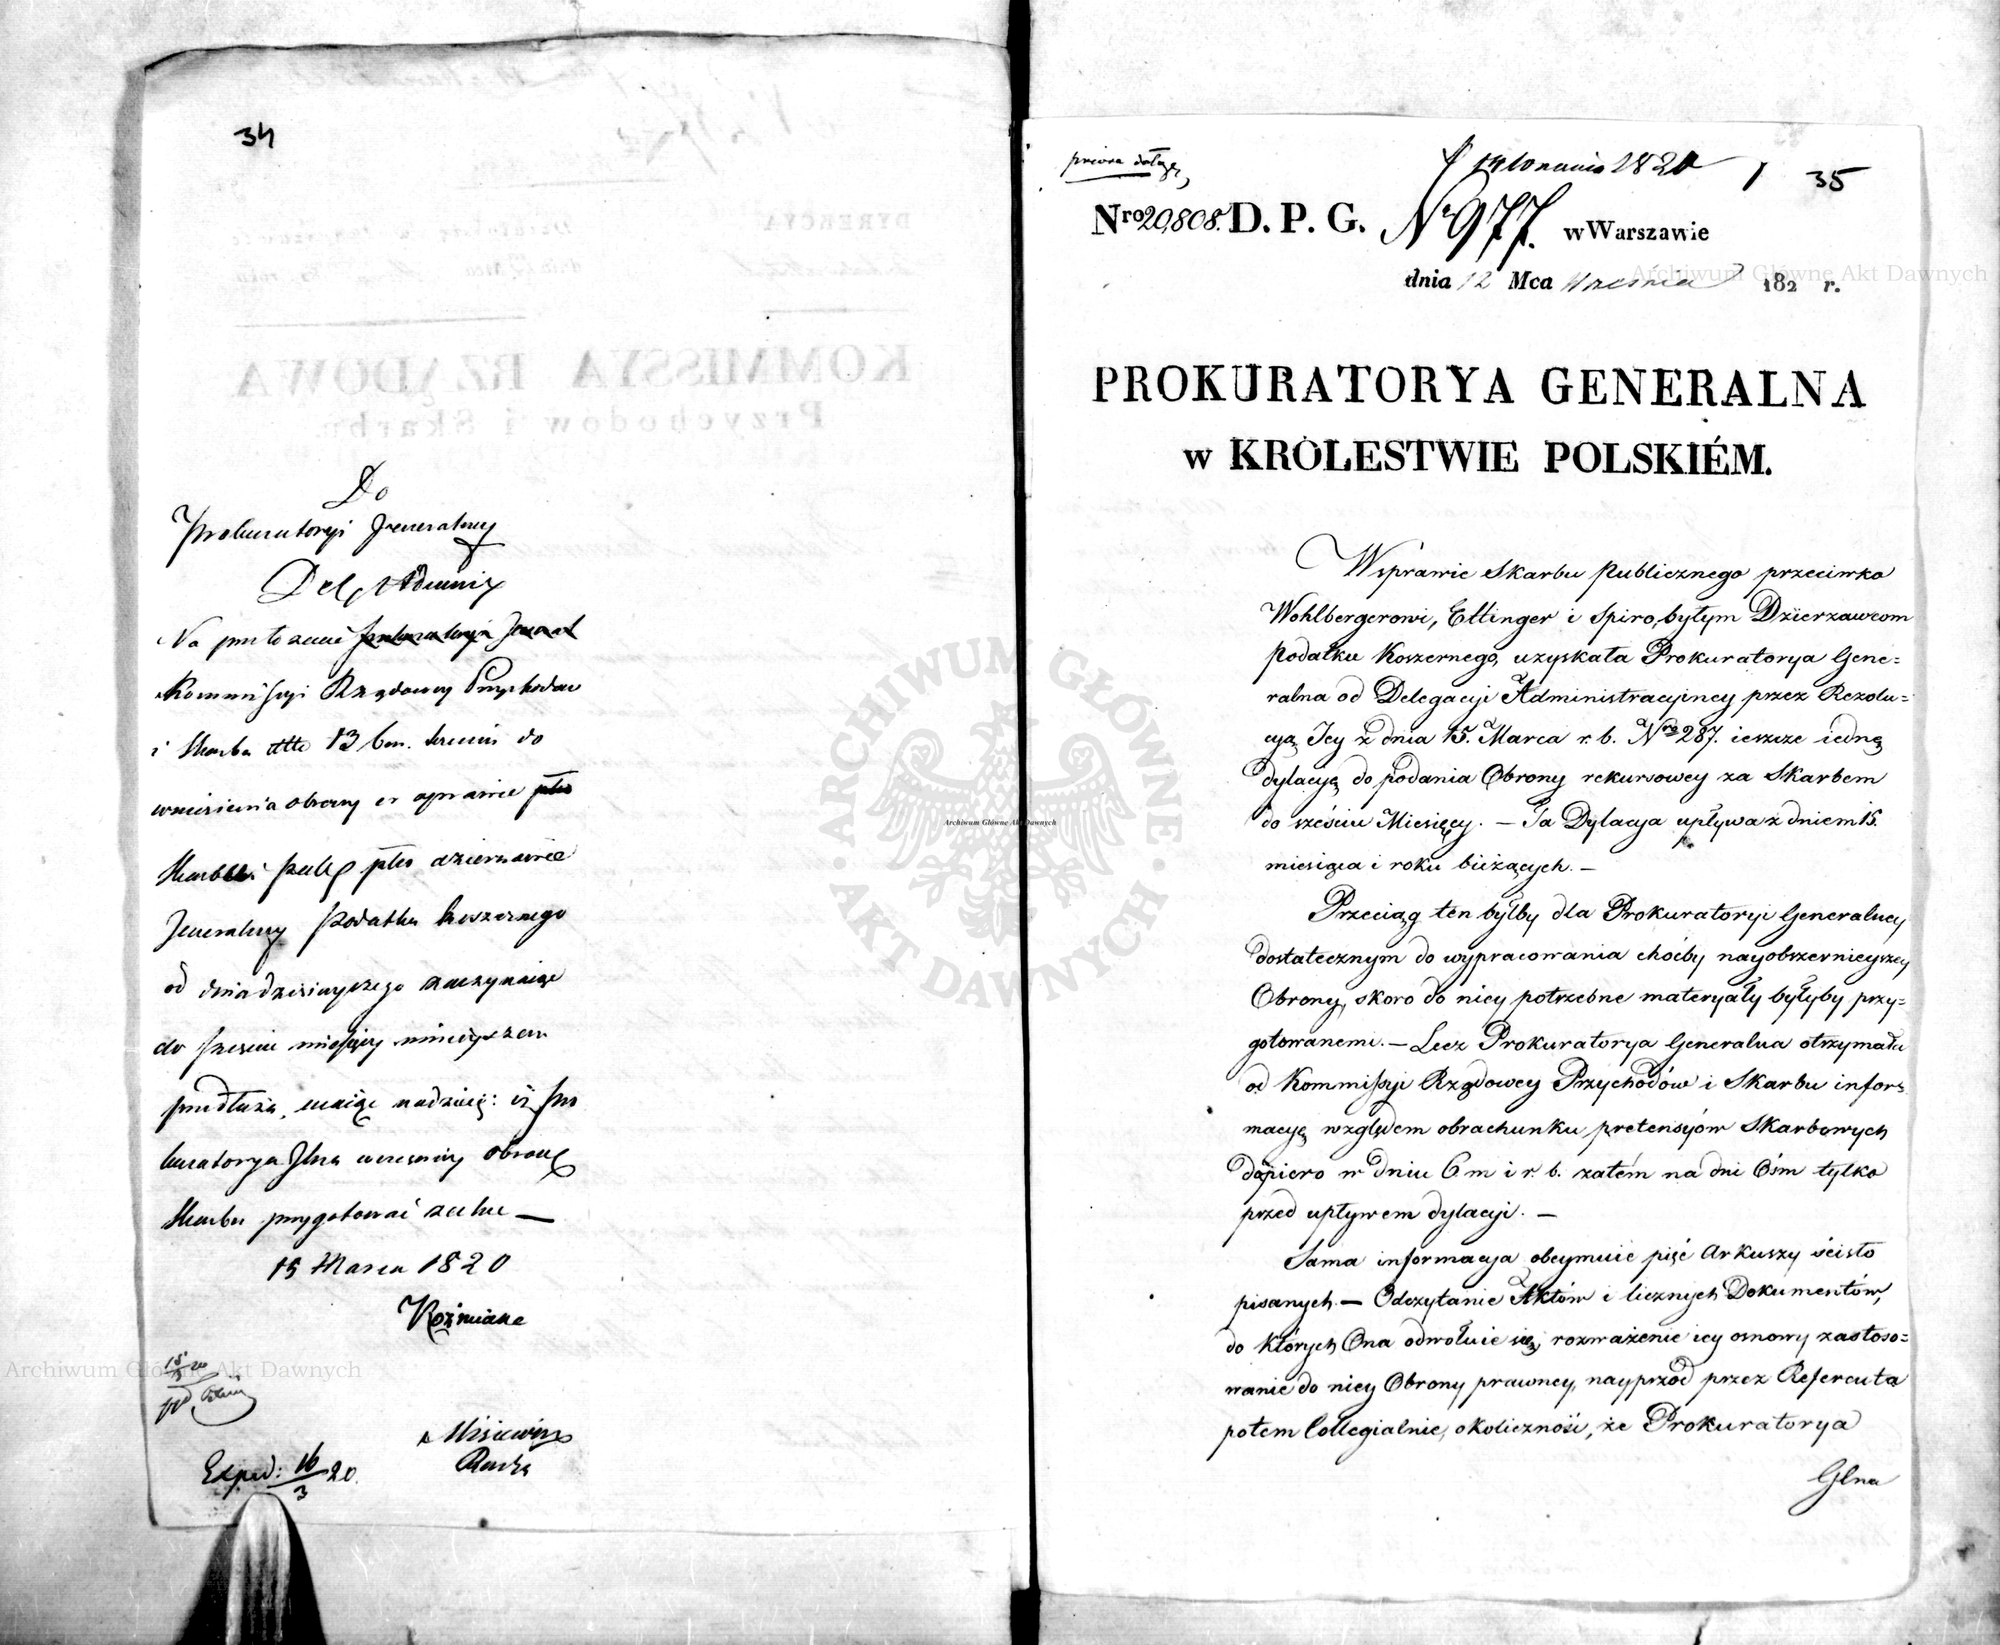 34
Do
Prokuratoryi Jeneralney
Del. Admini
Na przełożenie
Kommissyi Rządowey Przychodow
i Skarbu dtto 13 b.m. termin do
wniesienia obrony w sprawie
Skarbu publ. dzierzawie
Jeneralney podatku koszernego
od dnia dzisieyszego zaczynając
do sześciu miesięcy ninieyszem
przedłuża, maiąc nadzieię: iż Pro
kuratorya Jlna wcześniey obronę
Skarbu przygotować zechce —
15 Marca 1820
Koźmian
Exped: 16/3 20.
35
Nro 20,808. D. P. G. Nr 977. w Warszawie
dnia 12 Mca Września 182 r.
PROKURATORYA GENERALNA
w KRÓLESTWIE POLSKIÉM.
W sprawie Skarbu Publicznego przeciwko
Wohlbergerowi, Ettinger i Spiro, byłym Dzierzawcom
podatku Koszernego, uzyskała Prokuratorya Gene=
ralna od Delegacyi Administracyiney przez Rezolu=
cyą Jey z dnia 15. Marca r. b. Nro 287. ieszcze iedną
dylacyą do podania Obrony rekursowey za Skarbem
do sześciu Miesięcy. — Ta Dylacya upływa z dniem 15.
miesiąca i roku bieżących. —
Przeciąg ten byłby dla Prokuratoryi Generalney
dostatecznym do wypracowania choćby nayobszernieyszey
Obrony, skoro do niey potrzebne materyały byłyby przy=
gotowanemi. — Lecz Prokuratorya Generalna otrzymała
od Kommissyi Rządowey Przychodów i Skarbu infor=
macyą względem obrachunku pretensyów Skarbowych
dopiero w dniu 6 m i r. b. zatém na dni Ośm tylko
przed upływem dylacyi. —
Sama informacya obeymuie pięć Arkuszy ścisło
pisanych. — Odczytanie Aktów i licznych Dokumentów,
do których Ona odwołuie się, rozważenie iey osnowy zastoso=
wanie do niey Obrony prawney, nayprzód przez Referenta
potem Collegialnie, okoliczność, że Prokuratorya
Glna
Archiwum Główne Akt Dawnych
Archiwum Główne Akt Dawnych
Archiwum Główne Akt Dawnych
ARCHIWUM GŁÓWNE AKT DAWNYCH